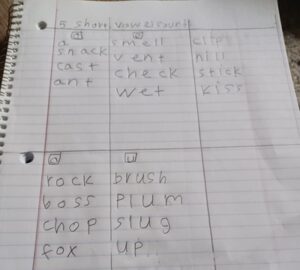 5 short vowel sound
a e
snack smell clip
cast vent hill
ant check stick
wet kiss
o u
rock brush
boss plum
chop slug
fox up